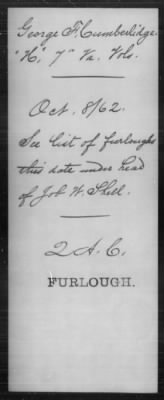 George F. Cumberlidge.
"H," 7" Va. Vols.
Oct. 8/62.
See list of furloughs
this date under head
of Job W. Shell.
2 A. C.
FURLOUGH.